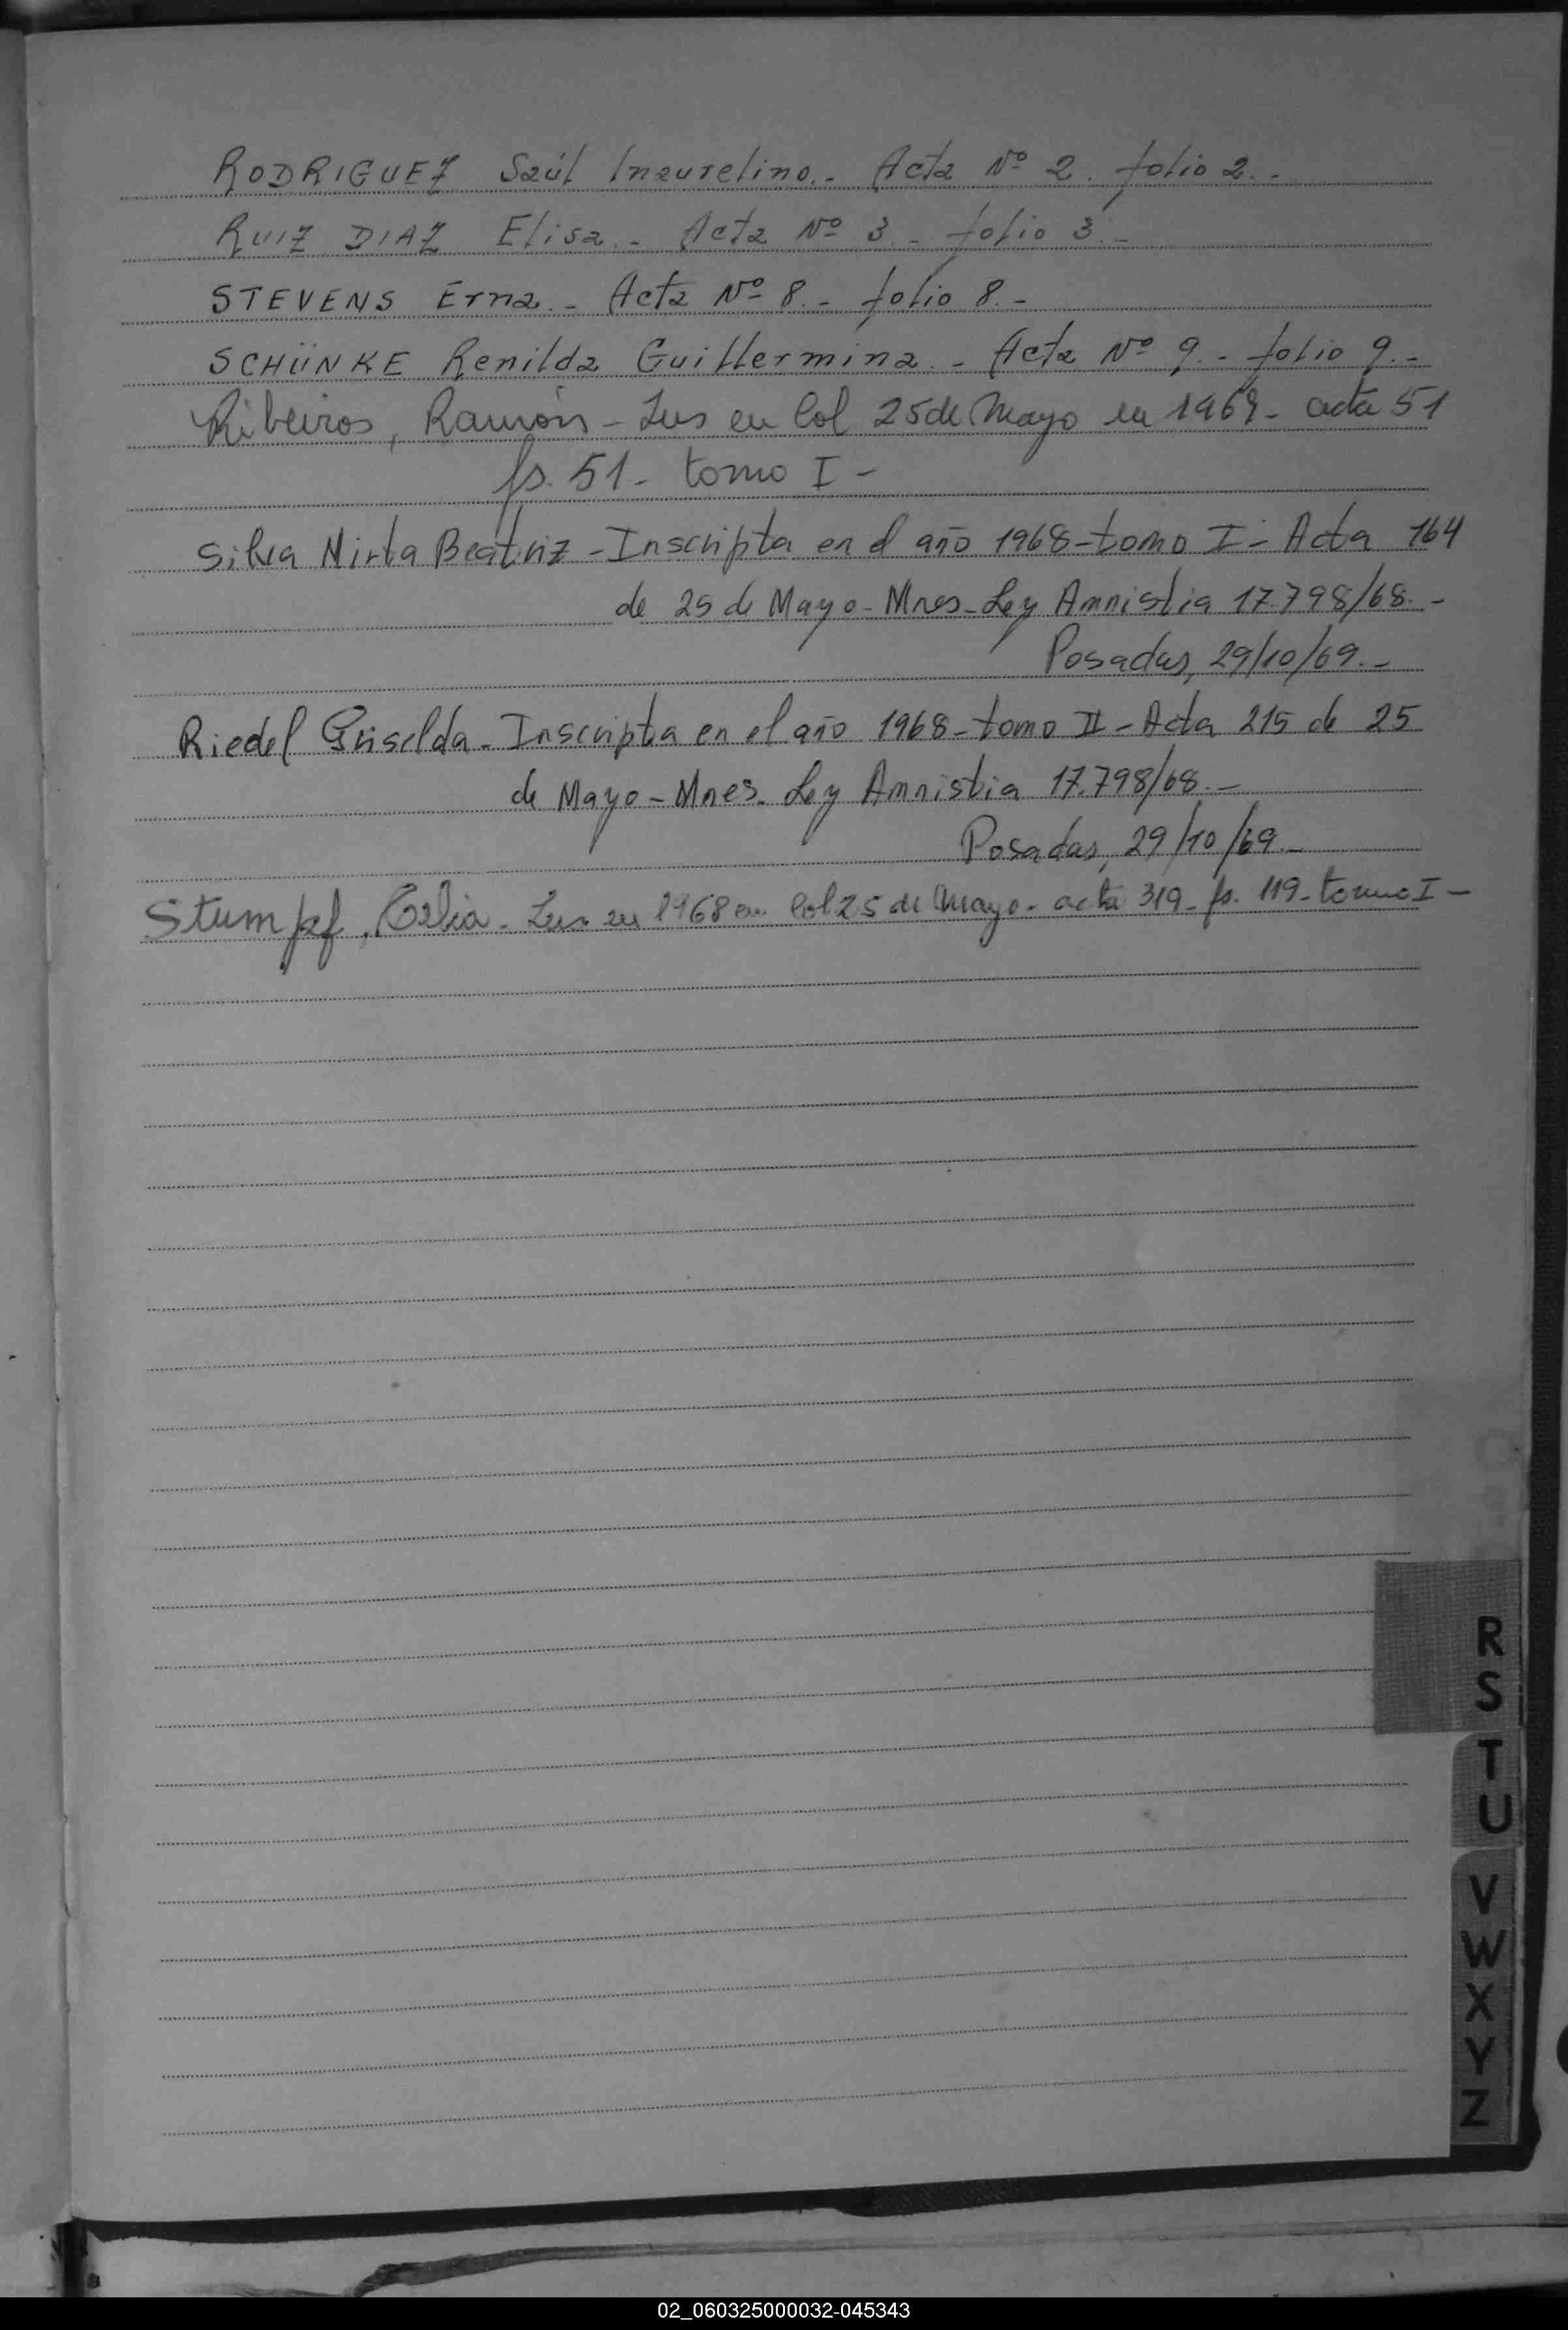 RODRIGUEZ Saúl Inaurelino.- Acta Nº 2. folio 2.-
RUIZ DIAZ Elisa.- Acta Nº 3.- folio 3.-
STEVENS Erna.- Acta Nº 8.- folio 8.-
SCHÜNKE Renilda Guillermina.- Acta Nº 9.- folio 9.-
Ribeiros, Ramón - Ins en Col 25 de Mayo en 1968 - acta 51
fs. 51 - tomo I -
Silva Mirta Beatriz - Inscripta en el año 1968 - tomo I - Acta 164
de 25 de Mayo - Mnes - Ley Amnistia 17.798/68.-
Posadas, 29/10/69.-
Riedel Griselda - Inscripta en el año 1968 - tomo II - Acta 215 de 25
de Mayo - Mnes. Ley Amnistia 17.798/68.-
Posadas, 29/10/69.-
Stumpf, - Ins en 1968 en Col 25 de Mayo - acta 319 - fs. 119 - tomo I -
R
S
T
U
V
W
X
Y
Z
02_060325000032-045343